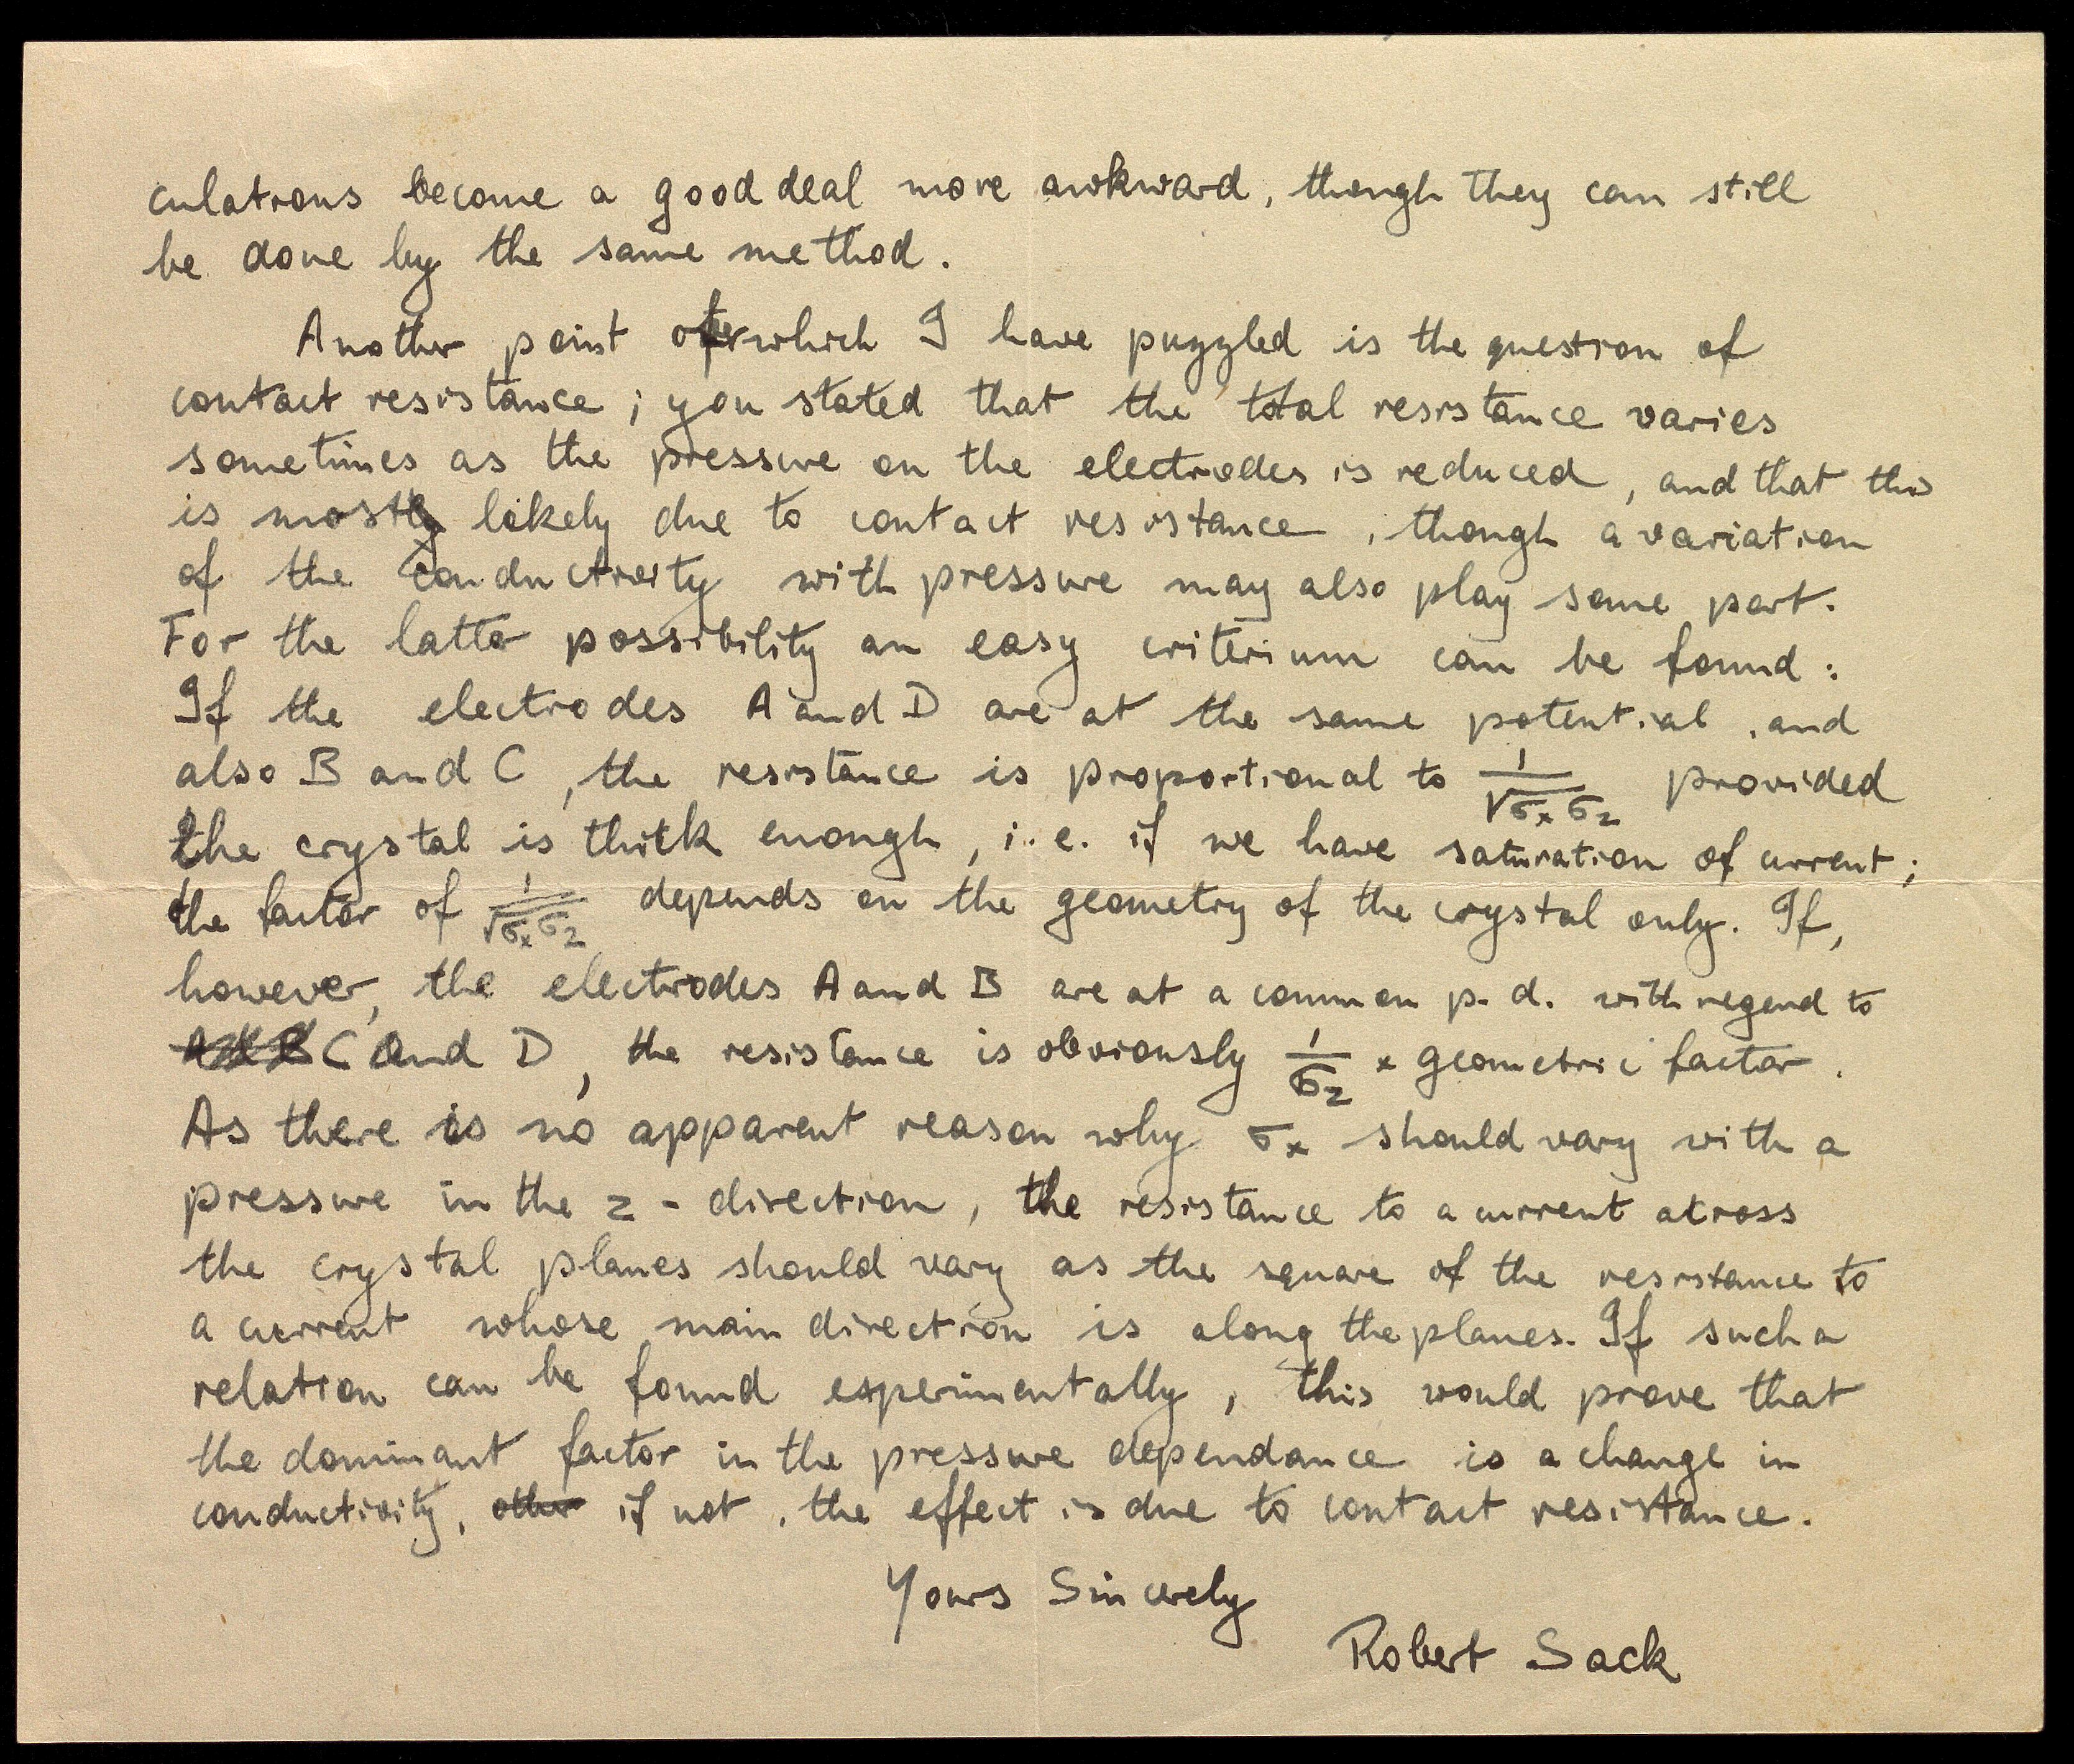 culations become a good deal more awkward, though they can still
be done by the same method.
Another point over which I have puzzled is the question of
contact resistance; you stated that the total resistance varies
sometimes as the pressure on the electrodes is reduced, and that this
is mostly likely due to contact resistance, though a variation
of the conductivity with pressure may also play some part.
For the latter possibility an easy criterium can be found:
If the electrodes A and D are at the same potential, and
also B and C, the resistance is proportional to 1/√σxσz provided
the crystal is thick enough, i.e. if we have saturation of current;
the factor of 1/√σxσz depends on the geometry of the crystal only. If,
however, the electrodes A and B are at a common p.d. with regard to
C and D, the resistance is obviously 1/σz × geometric factor.
As there is no apparent reason why σx should vary with a
pressure in the z-direction, the resistance to a current across
the crystal planes should vary as the square of the resistance to
a current whose main direction is along the planes. If such a
relation can be found experimentally, this would prove that
the dominant factor in the pressure dependance is a change in
conductivity, other if not, the effect is due to contact resistance.
Yours Sincerely
Robert Sack